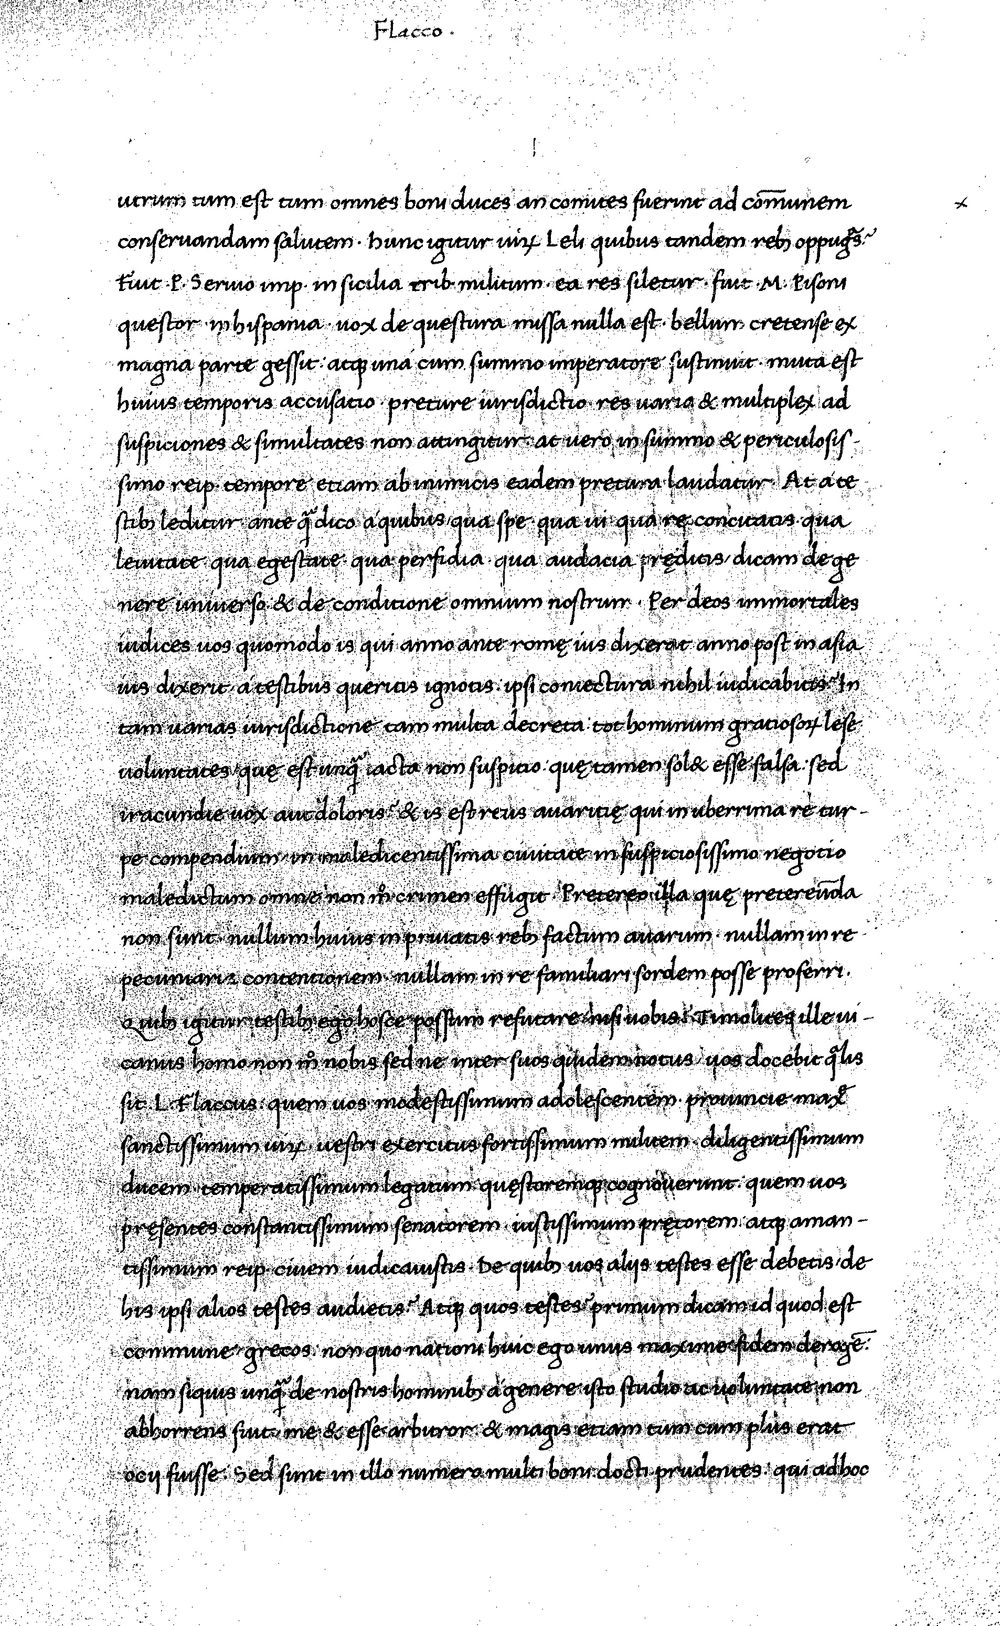 Flacco.
utrum tum est tum omnes boni duces an comites fuerint ad com̄unem
conseruandam salutem. hunc igitur uirꝝ Leli quibus tandem rebꝫ oppug̃s?
Fuit .P. Seruio imp. in sicilia trib. militum. ea res siletur. fuit .M. Pisoni
questor in hispania. uox de questura missa nulla est. bellum cretense ex
magna parte gessit. atqꝫ una cum summo imperatore sustinuit. muta est
huius temporis accusatio. preture iurisdictio res uaria & multiplex ad
suspiciones & simultates non attingitur. at uero in summo & periculosis-
simo reip. tempore etiam ab inimicis eadem pretura laudatur. At a te
stibꝫ leditur. ante q̃ dico a quibus qua spe. qua ui qua re concitatis qua
leuitate qua egestate. qua perfidia. qua audacia pręditis/ dicam de ge
nere uniuerso & de conditione omnium nostrum. Per deos immortales
iudices uos quomodo is qui anno ante romę ius dixerat anno post in asia
ius dixerit. a testibus queritis ignotis. ipsi coniectura nihil iudicabitis? In
tam uarias iurisdictione tam multa decreta tot hominum gratiosoꝝ lese
uoluntates/ quę est unq̃ iacta non suspitio. quę tamen sol& esse falsa. sed
iracundie uox aut doloris? & is est reus auaritię qui in uberrima re tur-
pe compendium/ in maledicentissima ciuitate in suspiciosissimo negotio
maledictum omne non m̊ crimen effugit. Pretereo illa quę pretereūda
non sunt. nullum huius in priuatis rebꝫ factum auarum. nullam in re
pecuniaria contentionem. nullam in re familiari sordem posse proferri.
Quibꝫ igitur testibꝫ ego hosce possum refutare/ nisi uobis? Timolites ille ui-
canus homo non m̊ nobis sed ne inter suos quidem notus/ uos docebit q̃lis
sit .L. Flaccus. quem uos modestissimum adolescentem. prouincie max̃
sanctissimum uirꝝ. uestri exercitus fortissimum militem. diligentissimum
ducem. temperatissimum legatum. quęstoremqꝫ cognouerunt. quem uos
pręsentes constantissimum senatorem. iustissimum pręcorem. atqꝫ aman-
tissimum reip. ciuem iudicauistis. De quibꝫ uos alijs testes esse debetis/ de
his ipsi alios testes audietis? Atqꝫ quos testes? primum dicam id quod est
commune. grecos. non quo nationi huic ego unus maxime fidem derogē.
nam siquis unq̃ de nostris hominibꝫ a genere isto studio ac uoluntate non
abhorrens fuit. me & esse arbitror. & magis etiam tum cum plus erat
ocij fuisse. Sed sunt in illo numero multi boni docti prudentes. qui ad hoc